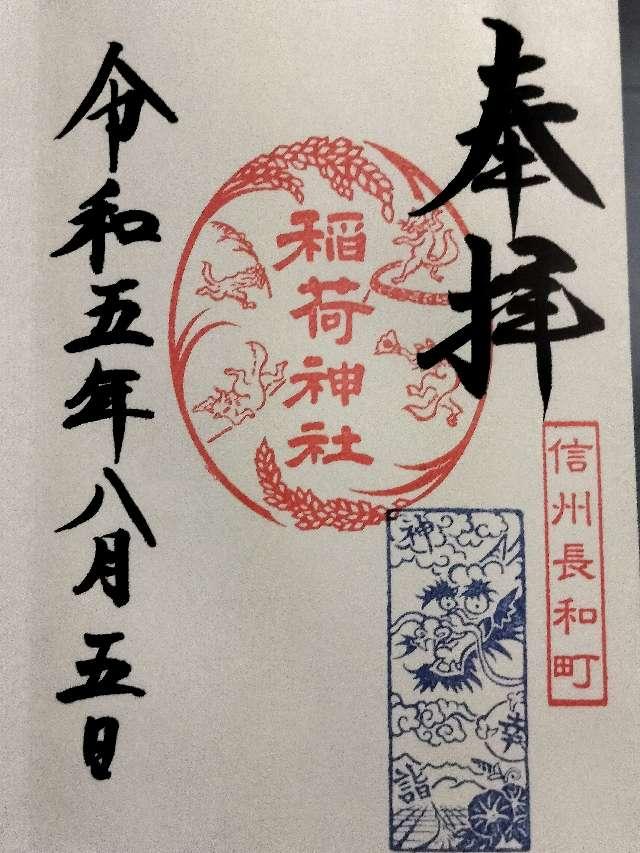 奉拝
信州長和町
稲荷神社
神
幸
詣
令和五年八月五日